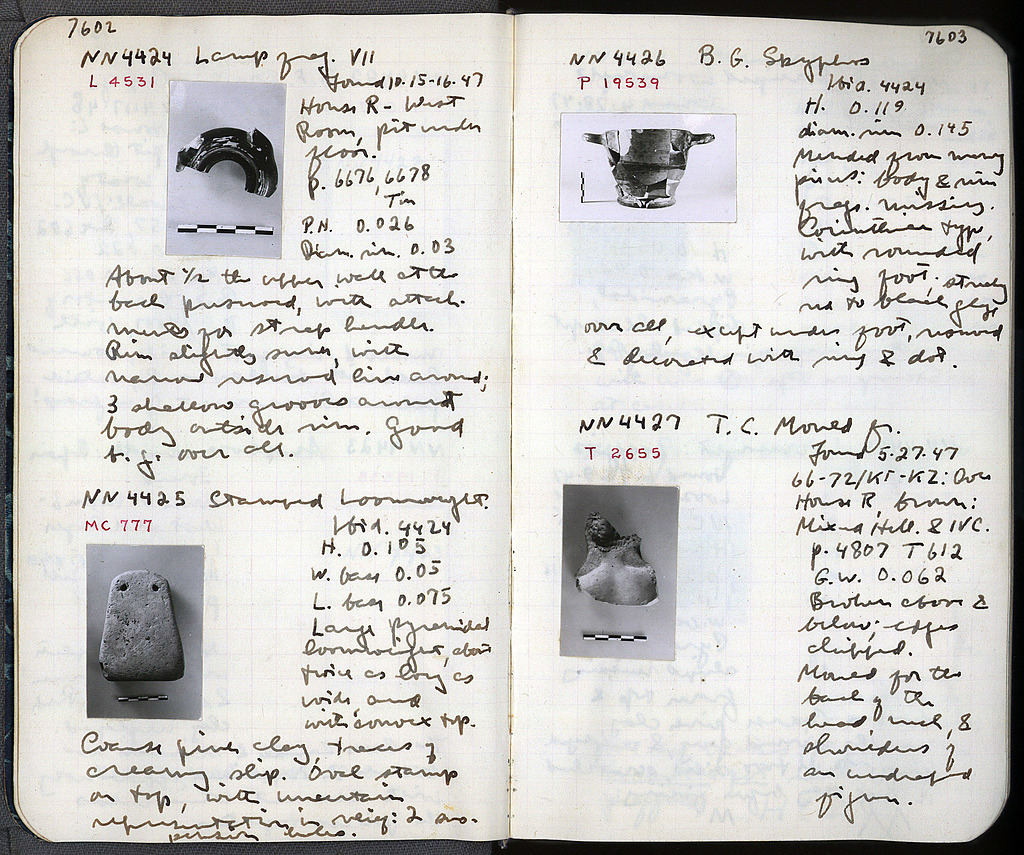 7602
NN4424 Lamp frag. VII
L 4531
Found 10.15-16.47
House R - West
Room, pit under
floor.
p. 6676, 6678
P.H. 0.026
Diam. rim. 0.03
About ½ the upper wall at the
back preserved, with attach-
ments for strap handle.
Rim slightly sunk, with
narrow reserved line around;
3 shallow grooves around
body outside rim. Good
b.g. over all.
NN4425 Stamped Loomweight.
MC 777
Ibid. 4424
H. 0.105
W. base 0.05
L. base 0.075
Large pyramidal
loomweight, about
twice as long as
wide and
with convex top.
Coarse pink clay, traces of
creamy slip. Oval stamp
on top, with uncertain
representation in relief: 2 sus-
pension holes.
7603
NN4426 B.G. Skyphos
P 19539
Ibid. 4424
H. 0.119
diam. rim 0.145
Mended from many
pieces: body & rim
frags. missing.
Corinthian type,
with rounded
ring foot; streaky
red to black glaze
over all, except under foot, reserved
& decorated with ring & dot.
NN4427 T.C. Mould fr.
T 2655
Found 5-27-47
66-72/ΚΓ-ΚΖ: Over
House R, brown:
Mixed Hell. & IVC.
p. 4807 T612
G.W. 0.062
Broken above &
below; edges
chipped.
Mould for the
back of the
head, neck, &
shoulders of
an undraped
figure.